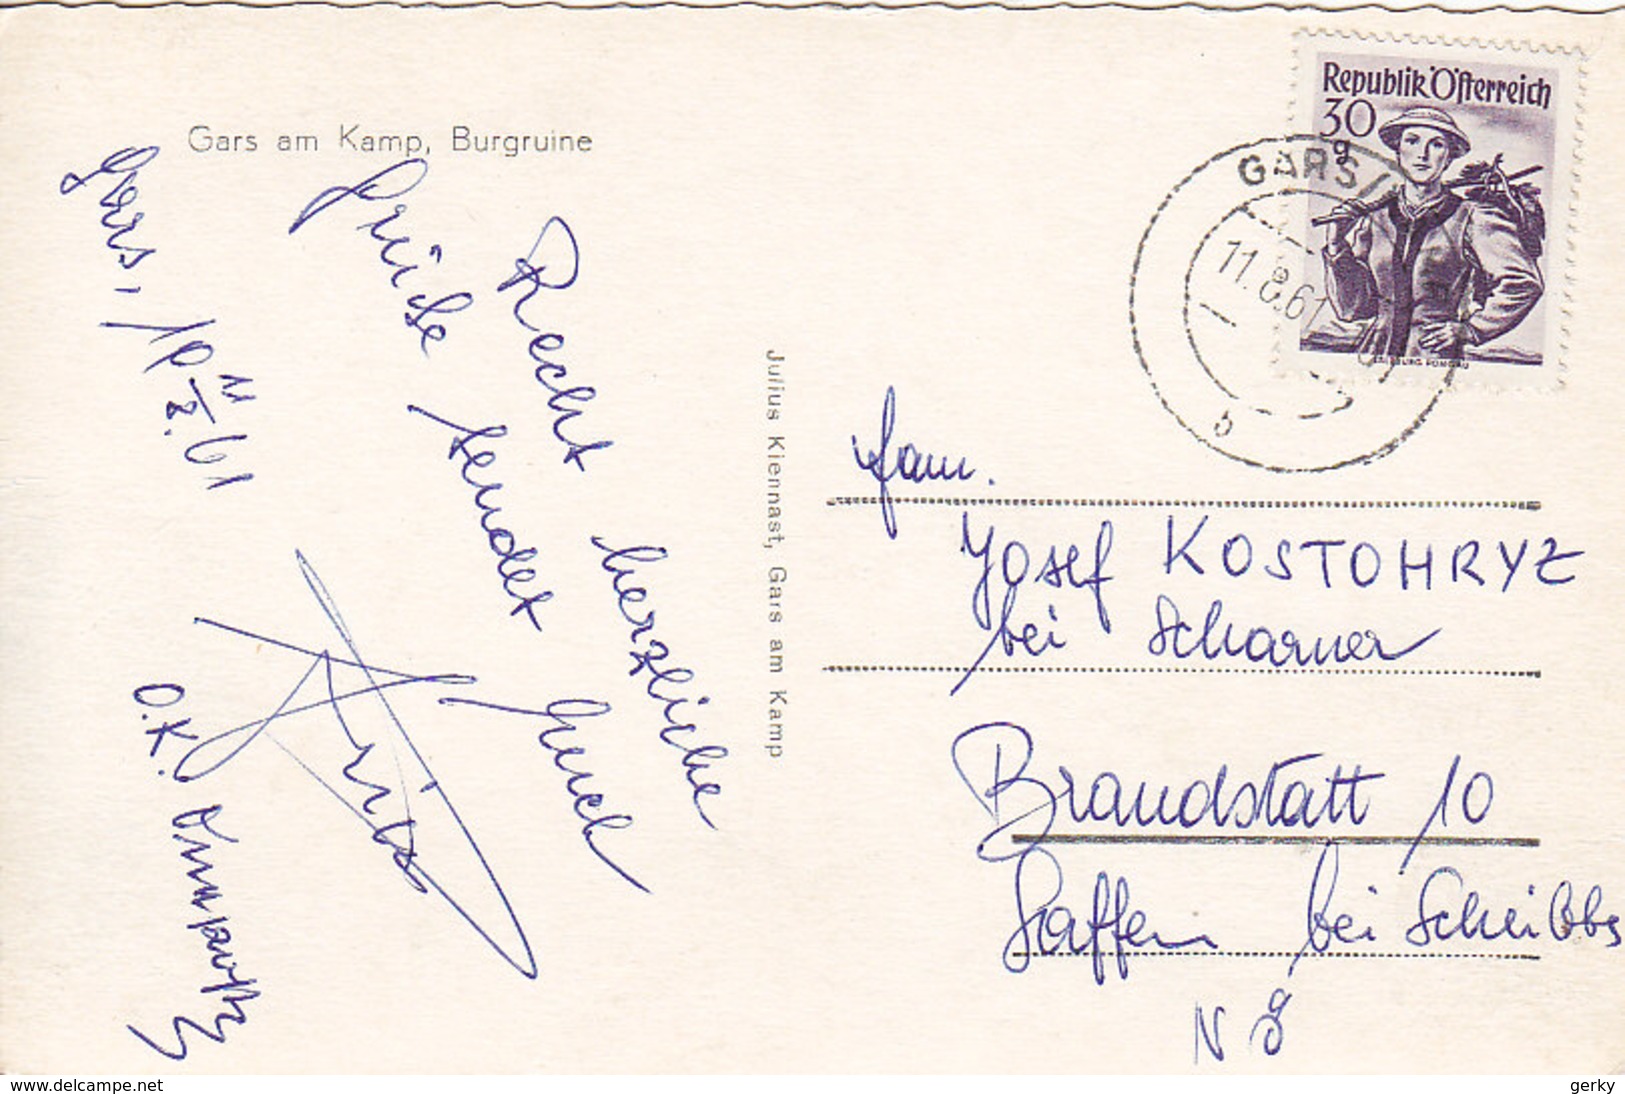 Gars am Kamp, Burgruine
Gars, 10 11/8. 61
Recht herzliche
Grüße sendet Euch
Fritz
O.K.
Julius Kiennast, Gars am Kamp
Republik Österreich
30
g
SALZBURG PONGAU
GARS/
11.8.61
b
Fam.
Josef KOSTOHRYZ
bei Scharner
Brandstatt 10
Saffen bei Scheibbs
NÖ
www.delcampe.net
gerky